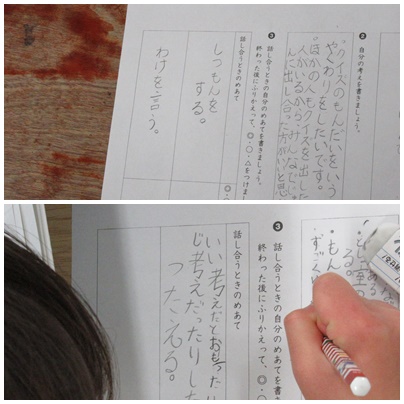 ❷ 自分の考えを書きましょう。
・クイズのもんだいをいう
やくわりをしたいです。
・ほかの人もクイズを出した
人がいるから、みんなで
んに出し合った方がいいと思
❸ 話し合うときの自分のめあてを書きましょう。
終わった後にふりかえって、◎・○・△をつけま
話し合うときのめあて
◎・○
しつもんを
する。
わけを言う。
る。
・もん
すごく
❸ 話し合うときの自分のめあてを書き
終わった後にふりかえって、◎・○
話し合うときのめあて
いい考えだとおもったり
じ考えだったりした
つたえる。